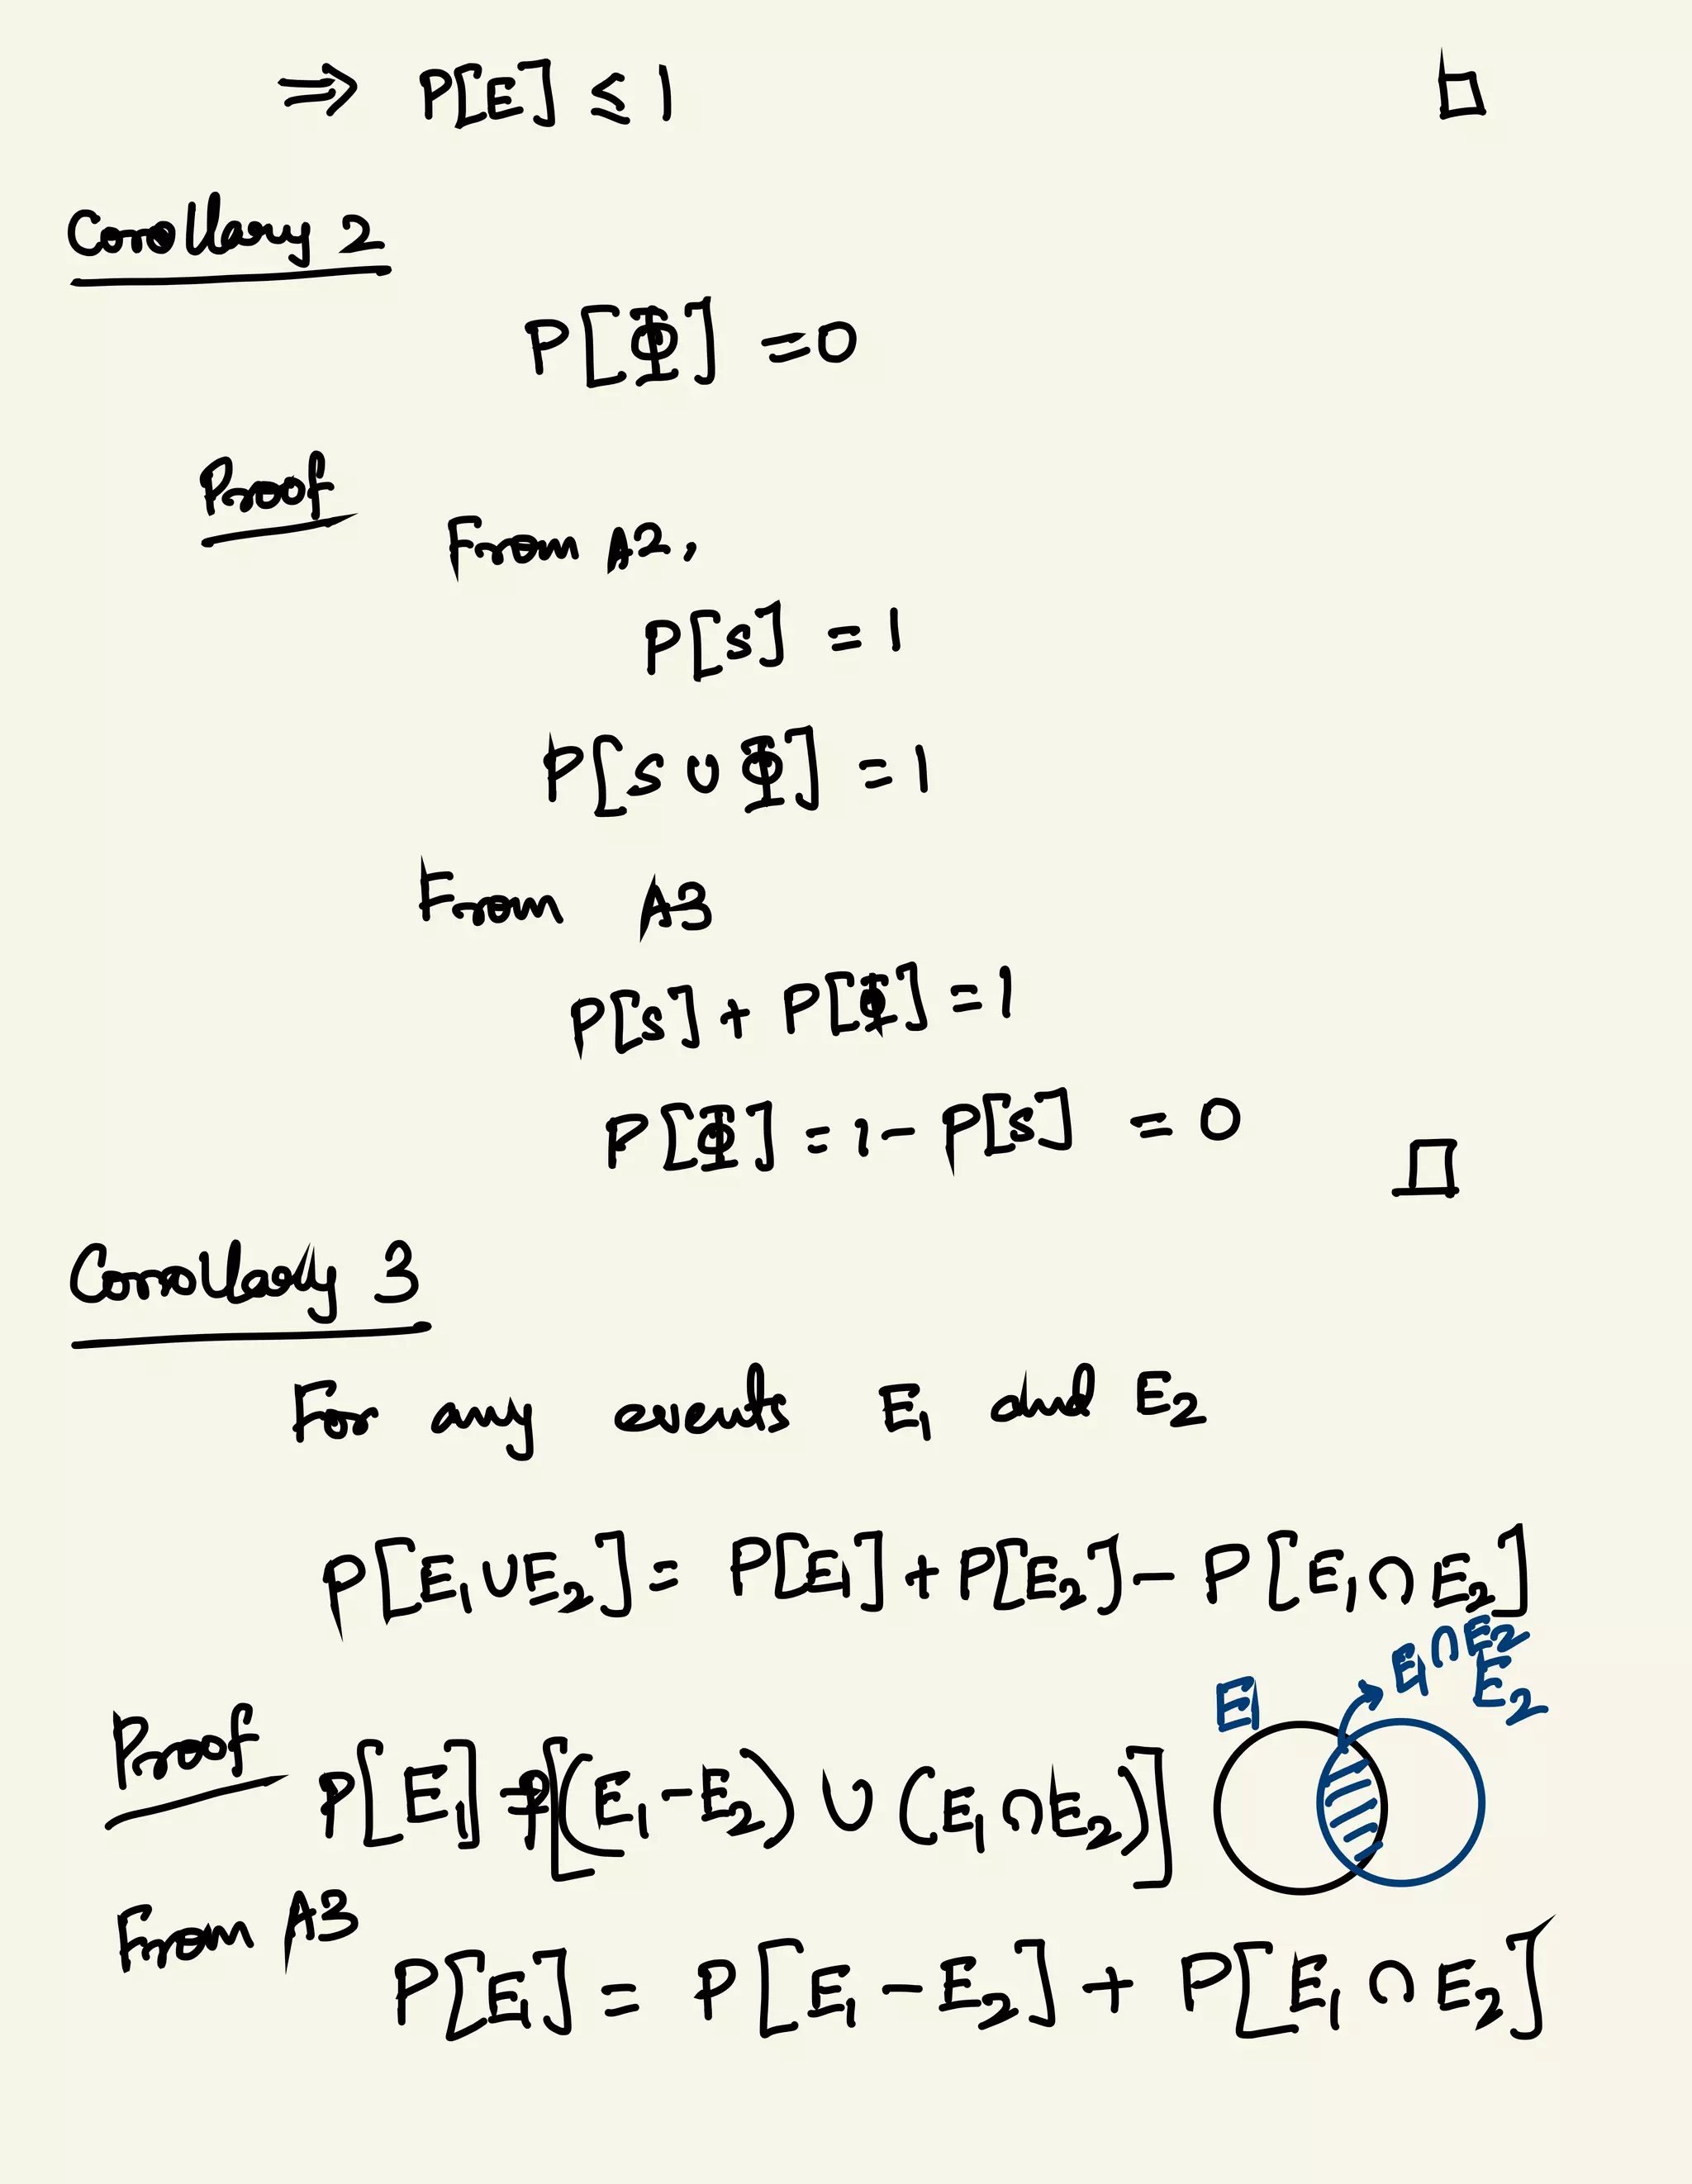 ⇒ P[E] ≤ 1 □
Corollary 2
P[Φ] = 0
Proof
From A2,
P[S] = 1
P[S ∪ Φ] = 1
From A3
P[S] + P[Φ] = 1
P[Φ] = 1 - P[S] = 0 □
Corollary 3
For any events E₁ and E₂
P[E₁ ∪ E₂] = P[E₁] + P[E₂] - P[E₁ ∩ E₂]
E₁ ∩ E₂
E₁ E₂
Proof
P[E₁] = P[(E₁ - E₂) ∪ (E₁ ∩ E₂)]
From A3
P[E₁] = P[E₁ - E₂] + P[E₁ ∩ E₂]